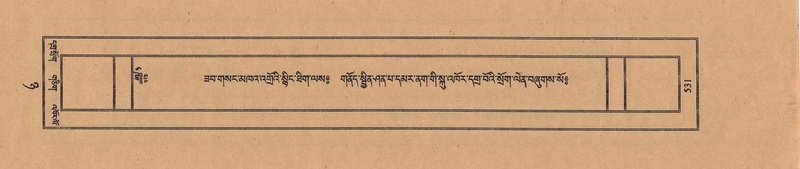 ཟབ་གསང་མཁའ་འགྲོའི་སྙིང་ཐིག་ལས༔ གནོད་སྦྱིན་ཤན་པ་དམར་ནག་གི་སྐུ་འཁོར་དགྲ་བོའི་སྲོག་ལེན་བཞུགས་སོ༔
531